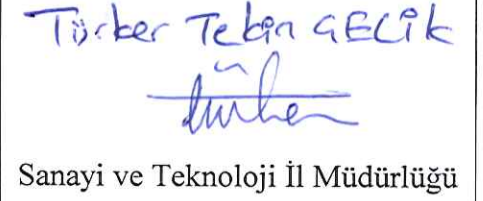 Türker Tekin GELİK
Sanayi ve Teknoloji İl Müdürlüğü